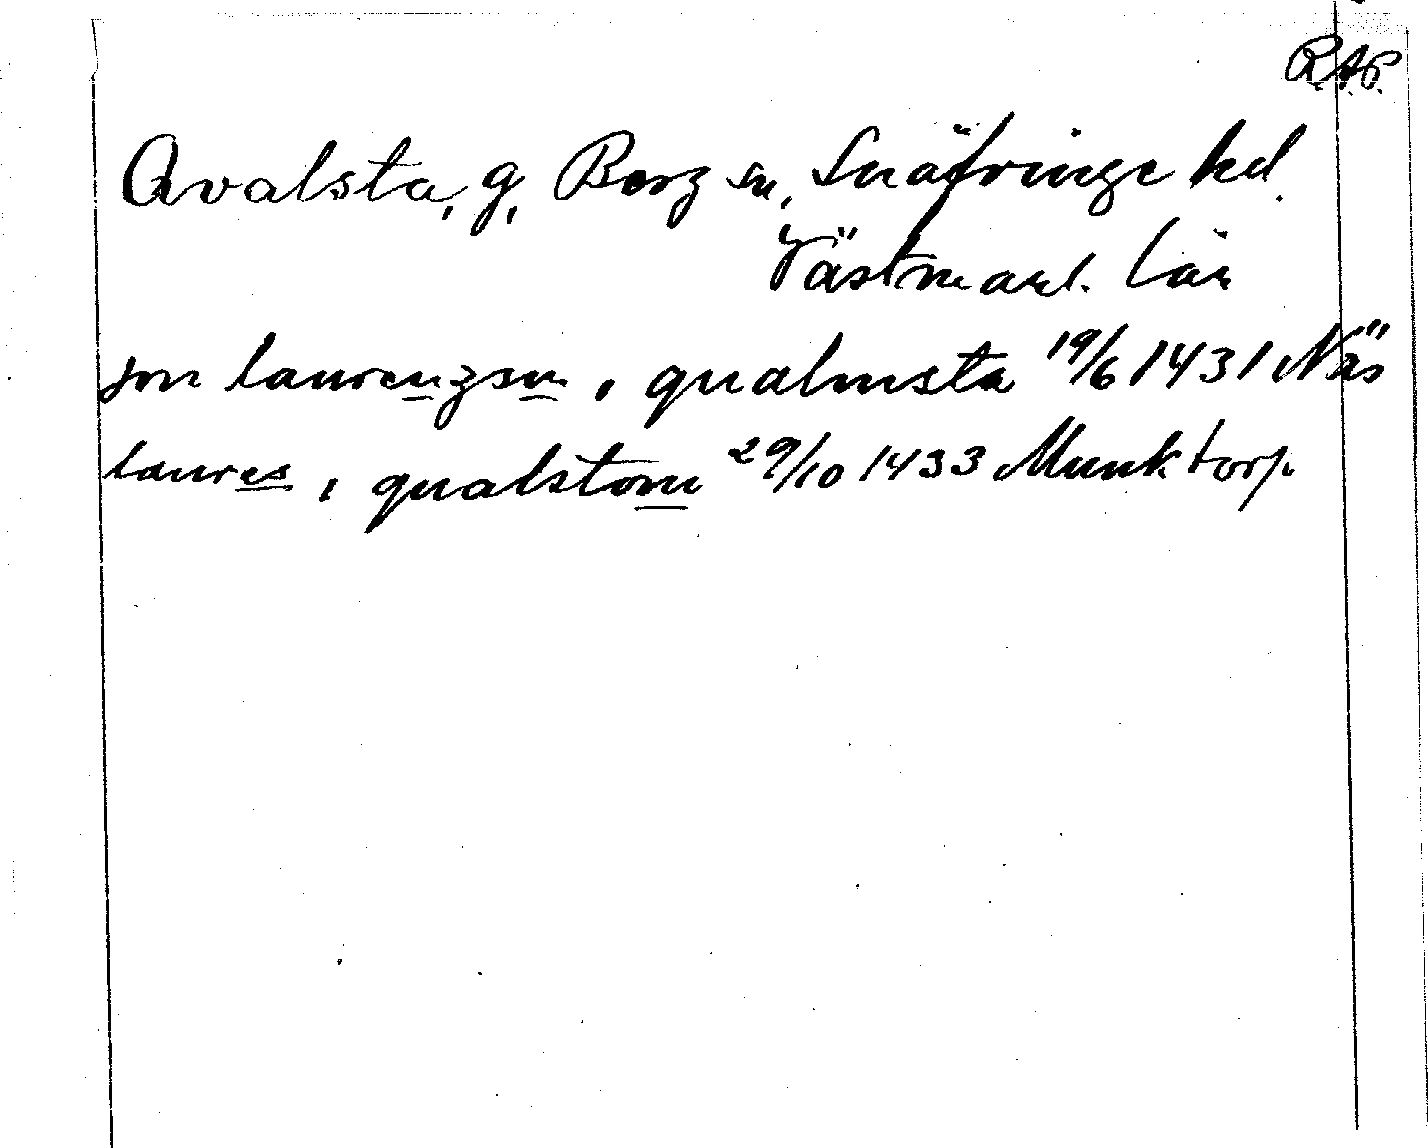 R.A.P.
Qvalsta, g, Berg sn, Snäfringe hd.
Västmanl. län
jon laurenzson i qualmsta 19/6 1431 Näs
laures i qualstom 29/10 1433 Munktorp